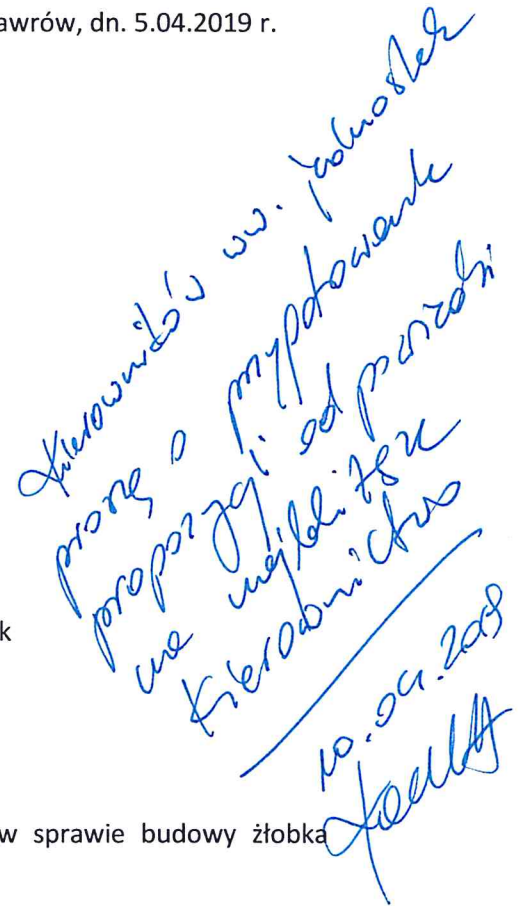 awrów, dn. 5.04.2019 r.
Kierowników ww. jednostek
proszę o przygotowanie
propozycji odpowiedzi
na najbliższe
Kierownictwo
10.04.2019
k
w sprawie budowy żłobka